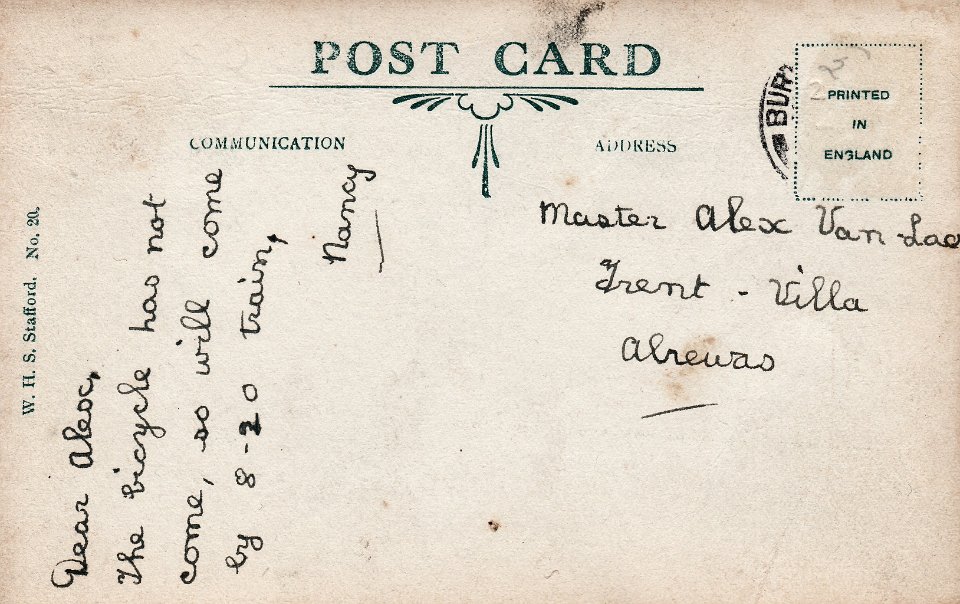 POST CARD
COMMUNICATION
ADDRESS
PRINTED
IN
ENGLAND
W. H. S. Stafford. No. 20.
Dear Alex,
The bicycle has not
come, so will come
by 8-20 train,
Nancy
Master Alex Van-Lae
Trent - Villa
Alrewas